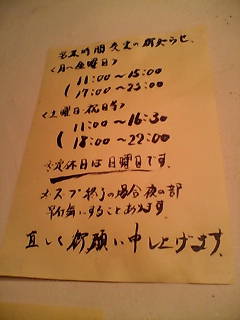 営業時間変更のお知らせ
(月〜金曜日)
(11:00〜15:00
17:00〜23:00
(土曜日祝日等)
(11:00〜16:30
18:00〜22:00
定休日は日曜日です。
スープ終了の場合夜の部
早仕舞にすることあります。
宜しく御願い申し上げます。